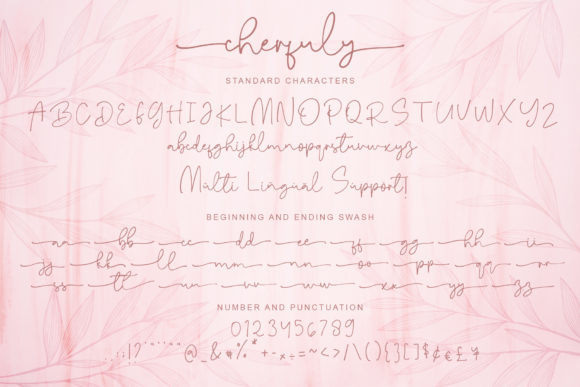 cherfuly
STANDARD CHARACTERS
ABCDEFGHIJKLMNOPQRSTUVWXYZ
abcdefghijklmnopqrstuvwxyz
Multi Lingual Support!
BEGINNING AND ENDING SWASH
aa bb cc dd ee ff gg hh ii
jj kk ll mm nn oo pp qq rr
ss tt uu vv ww xx yy zz
NUMBER AND PUNCTUATION
0123456789
.,:;!?'"‘’“”@_&#%*+-×÷=~<>/\|(){}[]$¢€£¥